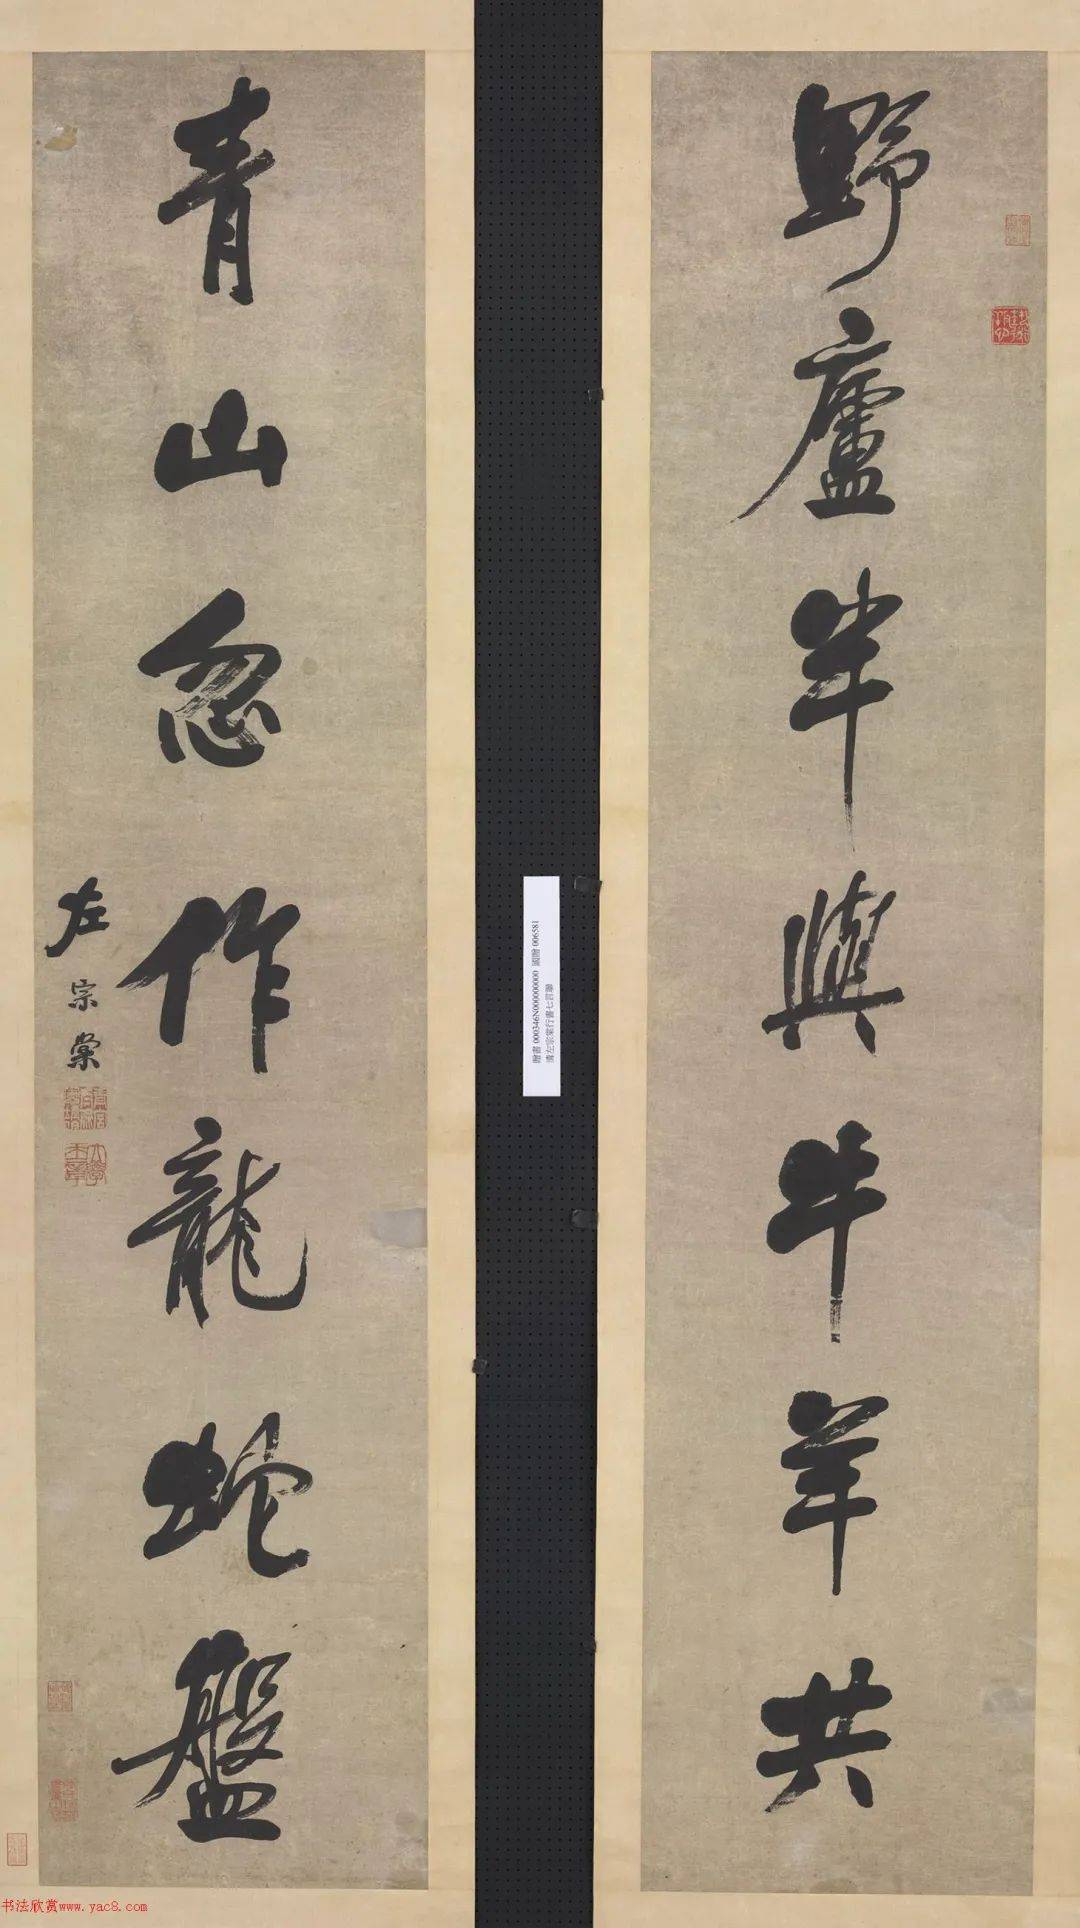 野廬半與牛羊共
青山忽作龍蛇盤
左宗棠
贈書 000346N000000000 國贈 006581
清左宗棠行書七言聯
书法欣赏www.yac8.com